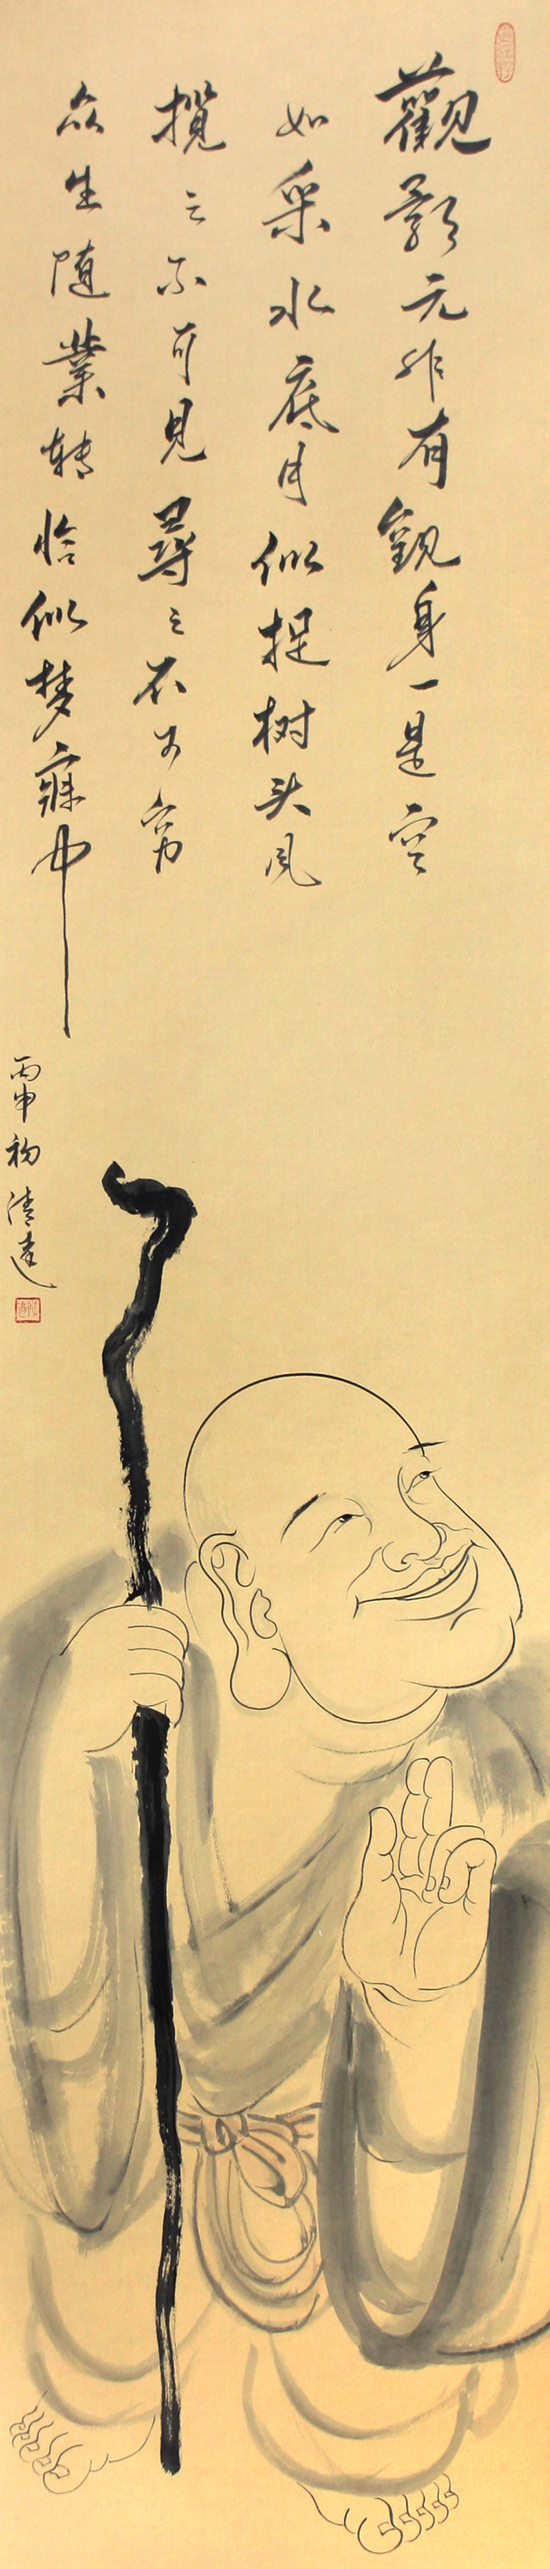 觀影元非有觀身一是空
如采水底月似捉树头风
揽之不可见尋之不可穷
众生随業转恰似梦寐中
丙申初清远